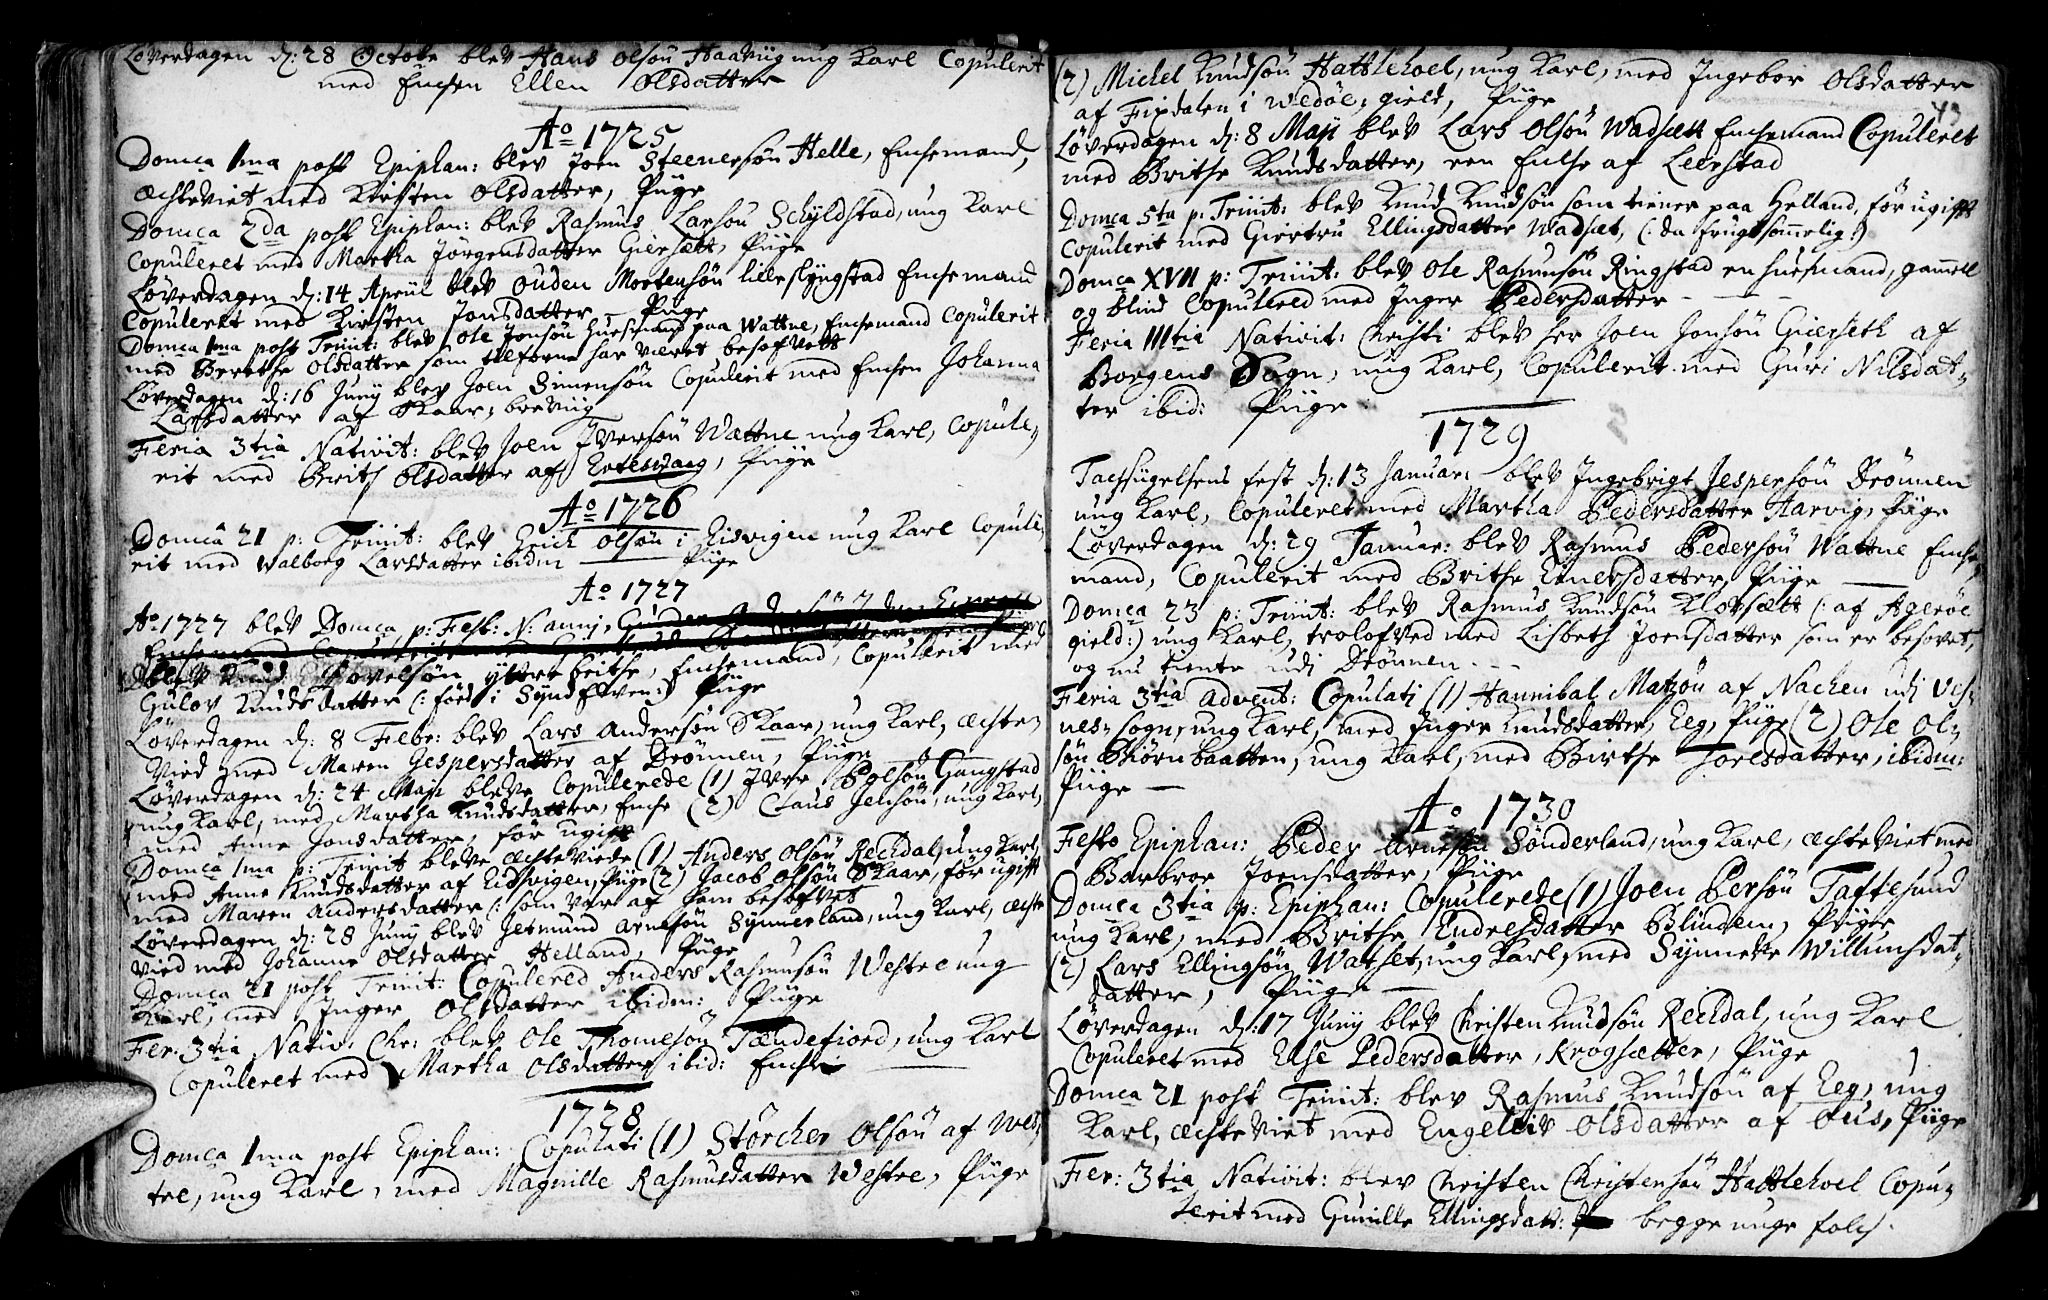 Løverdagen d: 28 Octobr blev Hans Olsøn Haaviig ung Karl Copulerit
med Encken Ellen Olsdatter
Ao 1725
Domca 1ma post Epiphan: blev Joen Steenersøn Helle, Enckemand,
ægteviet med Kirsten Olsdatter, Piige
Domca 2da post Epiphan: blev Rasmus Larsøn Schyldstad, ung Karl
Copuleret med Martha Jørgensdatter Giersætt, Piige
Løverdagen d: 14 Apriil blev Ouden Mortensøn Lilleslyngstad Enckemand
Copuleret med Kirsten Jonsdatter Piige
Domca 1ma post Trinit: blev Ole Jonsøn Huusmand paa Wattne, Enckemand Copulerit
med Berethe Olsdatter som tilforne har været besofvett
Løverdagen d: 16 Juny blev Joen Simensøn Copulerit med Encken Johanna
Larsdatter af Skaar, breviig
Feria 3tia Nativit: blev Joen Iversøn Wattne ung Karl, Copule-
rit med Brith Olsdatter af Erteswaag, Piige
Ao 1726
Domca 21 p: Trinit: blev Erich Olsøn i Eisvigen ung Karl Copule-
rit med Walborg Larsdatter ibidm Piige
Ao 1727
Ao 1727 blev Domca p: Fest: N: anni,
blev Knud Povelsøn yttre beithe, Enckemand, Copulerit med
Gulov Knudsdatter (: født i Syndflven :) Piige
Løverdagen d: 8 Febr: blev Lars Andersøn Skaar, ung Karl, ægte-
vied med Maren Jespersdatter af Drønnen, Piige
Løverdagen d: 24 Maji bleve Copulerede (1) Iver Polsøn Gangstad
ung Karl, med Martha Knudsdatter, Encke (2) Claus Jensøn, ung Karl,
med Anne Jonsdatter, før ugift
Domca 1ma p: Trinit bleve ægteviede (1) Anders Olsøn Rechdal, ung Karl,
med Anne Knudsdatter af Eidsvigen, Piige (2) Jacob Olsøn Skaar, før ugift
med Maren Andersdatter (: som var af ham besofvet
Løverdagen d: 28 Juny blev Jetmund Arnesøn Synnerland, ung Karl, ægte
vied med Johanne Olsdatter Helland, Piige
Domca 21 post Trinit: Copulered Anders Rasmusøn Westre ung
Karl, med Inger Olsdatter ibidm: Piige
Fer: 3tia Nativ: Chr: blev Ole Thomesøn Tændefiord, ung Karl
Copuleret med Martha Olsdatter ibid: Encke
1728
Domca 1ma post Epiphan: Copulati (1) Störcher Olsøn af Wes-
tre, ung Karl, med Magnille Rasmusdatter Westre, Piige
(2) Michel Knudsøn Hattlehoel, ung Karl, med Ingebor Olsdatter
af Fixdalen i Wedøe, gield, Piige
Løverdagen d: 8 Maji blev Lars Olsøn Wadsætt Enckemand Copuleret
med Brithe Knudsdatter, een Encke af Leerstad
Domca 5ta p: Trinit: blev Knud Knudsøn som tiener paa Helland, før ugift
Copulerit med Giertru Ellingsdatter Wadsæt, (: da frugtsommelig :)
Domca XVII p: Trinit: blev Ole Rasmusøn Ringstad en huusmand, gammell
og blind Copulered med Inger Pedersdatter
Feria IIItia Nativit: Christi blev her Joen Jonsøn Gierseth af
Borgens Sogn, ung Karl, Copulerit med Guri Nilsdat-
ter ibid: Piige
1729
Tacksigelsens fest d: 13 Januar: blev Ingebrigt Jespersøn Drønnen
ung Karl, Copuleret med Martha Pedersdatter Harvig, Piige
Løverdagen d: 29 Januar: blev Rasmus Pedersøn Wattne Encke-
mand, Copulerit med Brithe Einersdatter, Piige
Domca 23 p: Trinit: blev Rasmus Knudsøn Klovsætt (: af Agerøe
gield :) ung Karl, trolofved med Lisbeth Joensdatter som er besovet,
og nu tiente udi Drönnen
Feria 3tia Advent: Copulati (1) Hannibal Matzøn af Nachen udj Ves-
nes-Sogn, ung Karl, med Inger Knudsdatter, Eeg, Piige (2) Ole Ol-
søn Biörnbaatten, ung Karl, med Birthe Joelsdatter, ibidm:
Piige
Ao 1730
Festo Epiphan: Peder Arnesøn Sönderland, ung Karl, ægteviet med
Barbroe Joensdatter, Piige
Domca 3tia p: Epiphan: Copulerede (1) Joen Persøn Taftesund
ung Karl, med Brithe Endresdatter Blindem, Piige
(2) Lars Ellingsøn Watset, ung Karl, med Synnette Willumsdat-
datter, Piige
Løverdagen d: 17 Juny blev Christen Knudsøn Rechdal, ung Karl
Copuleret med Else Pedersdatter, Krogsætter, Piige
Domca 21 post Trinit: blev Rasmus Knudsøn af Eeg, ung
Karl, ægteviet med Engeleiv Olsdatter af Ous, Piige
Fer: 3tia Nativit: blev Christen Christensøn Hattlehoel Copu-
lerit med Gunille Ellingsdatt: begge unge folch.